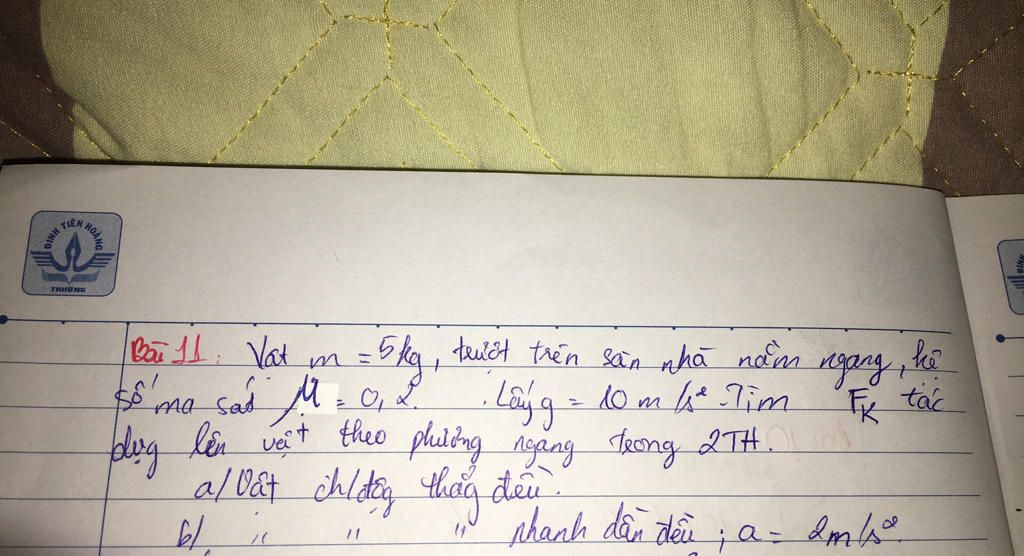 ĐINH TIÊN HOÀNG
TRƯỜNG
Bài 11: Vật m = 5kg, trượt trên sàn nhà nằm ngang, hệ
số ma sát μ = 0,2. Lấy g = 10 m/s². Tìm F_K tác
dụg lên vật theo phương ngang trong 2TH.
a/ Vật ch/độg thẳg đều.
b/ " " " nhanh dần đều ; a = 2m/s².